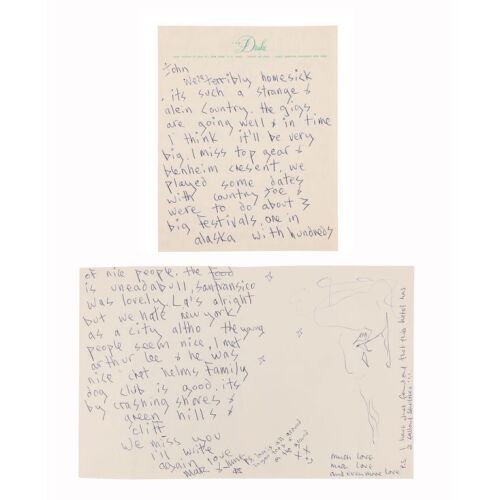 The Drake
John
We're terribly homesick
, its such a strange &
alein country. the gigs
are going well & in time
I think it'll be very
big. I miss top gear &
blenheim cresent, we
played some dates
with country Joe &
were to do about 3
big festivals, one in
alaska with hundreds
of nice people. the food
is uneadabull, sanfransico
was lovely. La's alright
but we hate new york
as a city altho the young
people seem nice, I met
arthur lee & he was
nice chet helms family
dog club is good, its
by crashing shores &
green hills &
cliff
We miss you
I'll write
again love
much love
mark love
and even more love
P.S. I have just found out that this hotel has